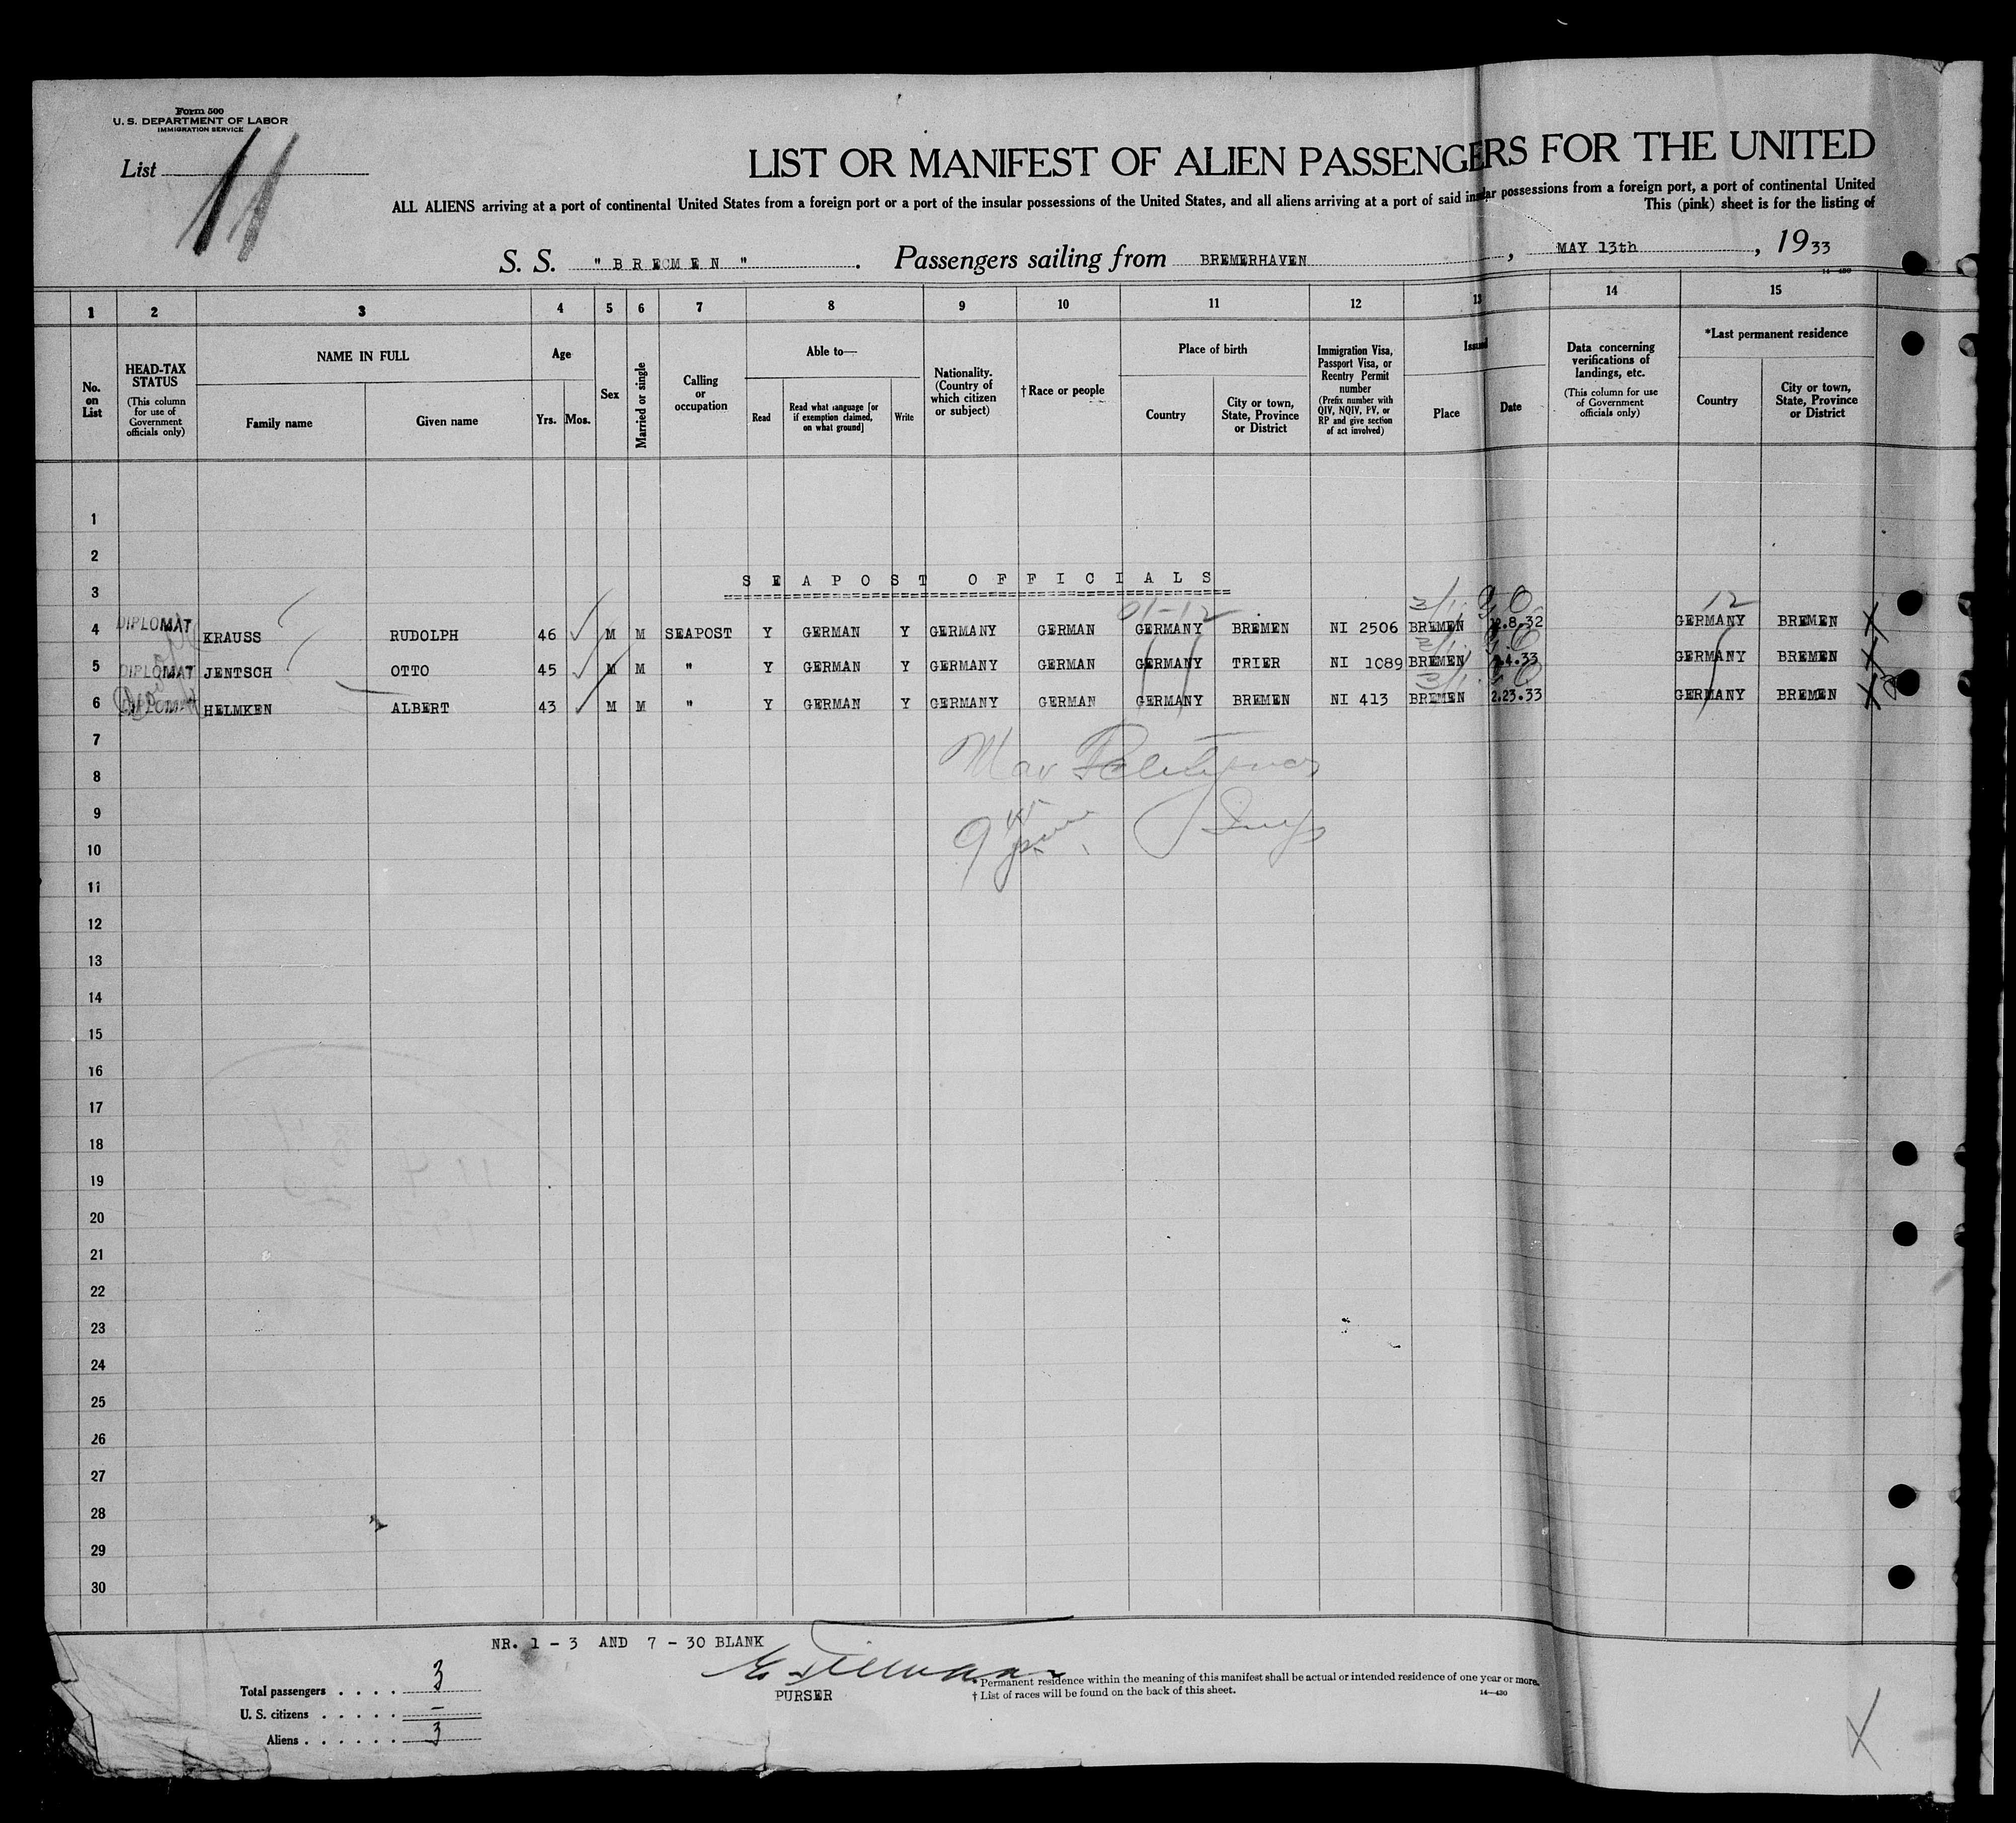 Form 500
U. S. DEPARTMENT OF LABOR
IMMIGRATION SERVICE
List 11
LIST OR MANIFEST OF ALIEN PASSENGERS FOR THE UNITED
ALL ALIENS arriving at a port of continental United States from a foreign port or a port of the insular possessions of the United States, and all aliens arriving at a port of said insular possessions from a foreign port, a port of continental United
This (pink) sheet is for the listing of
S. S. "BREMEN". Passengers sailing from BREMERHAVEN, MAY 13th, 1933
14—430
1 2 3 4 5 6 7 8 9 10 11 12 13 14 15
No. on List
HEAD-TAX STATUS
(This column for use of Government officials only)
NAME IN FULL
Family name
Given name
Age
Yrs. Mos.
Sex
Married or single
Calling or occupation
Able to—
Read
Read what language [or if exemption claimed, on what ground]
Write
Nationality. (Country of which citizen or subject)
† Race or people
Place of birth
Country
City or town, State, Province or District
Immigration Visa, Passport Visa, or Reentry Permit number
(Prefix number with QIV, NQIV, PV, or RP and give section of act involved)
Issued
Place
Date
Data concerning verifications of landings, etc.
(This column for use of Government officials only)
*Last permanent residence
Country
City or town, State, Province or District
1
2
SEAPOST OFFICIALS
3
01-12
12
4 DIPLOMAT KRAUSS RUDOLPH 46 M M SEAPOST Y GERMAN Y GERMANY GERMAN GERMANY BREMEN NI 2506 BREMEN 12.8.32 GERMANY BREMEN
5 DIPLOMAT JENTSCH OTTO 45 M M " Y GERMAN Y GERMANY GERMAN GERMANY TRIER NI 1089 BREMEN 4.33 GERMANY BREMEN
6 DIPLOMAT HELMKEN ALBERT 43 M M " Y GERMAN Y GERMANY GERMAN GERMANY BREMEN NI 413 BREMEN 2.23.33 GERMANY BREMEN
7
8
9
10
11
12
13
14
15
16
17
18
19
20
21
22
23
24
25
26
27
28
29
30
NR. 1 - 3 AND 7 - 30 BLANK
PURSER
Total passengers . . . . 3
U. S. citizens . . . . . —
Aliens . . . . . . 3
* Permanent residence within the meaning of this manifest shall be actual or intended residence of one year or more.
† List of races will be found on the back of this sheet.
14—430